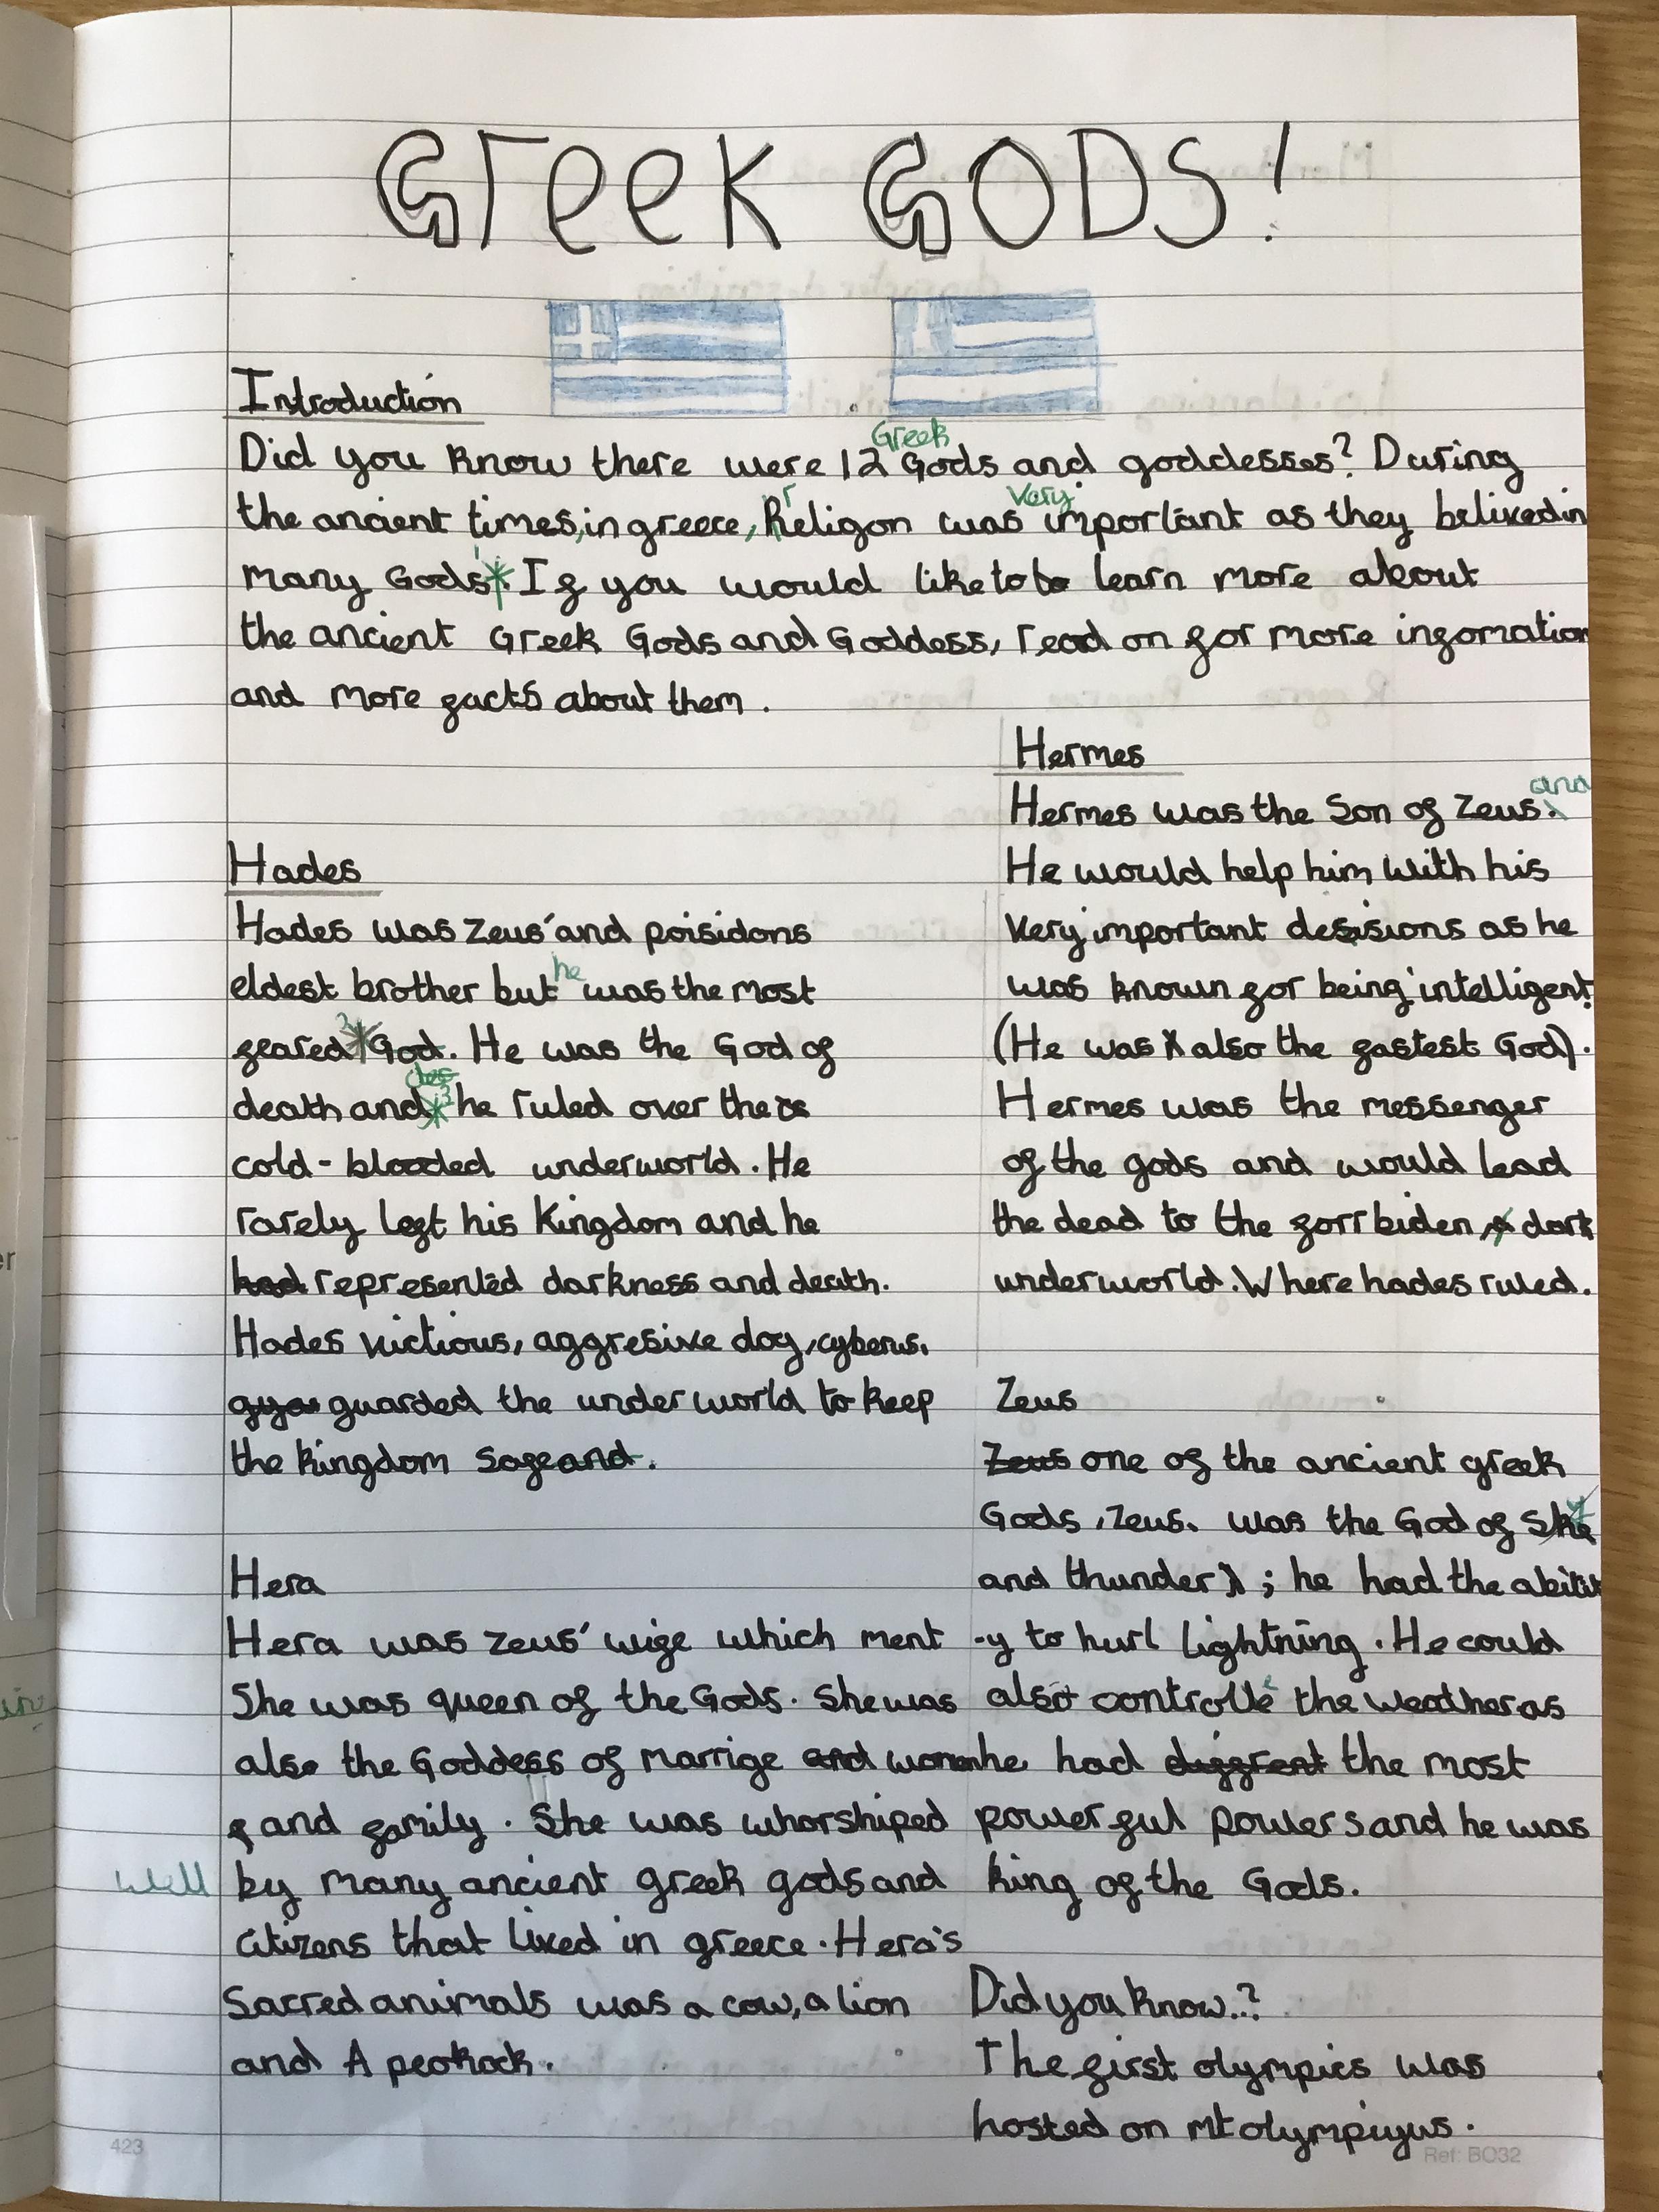 Greek GODS!
Introduction
Greek
Did you know there were 12 Gods and goddesses? During
r very
the ancient times, in greece, Religon was important as they belived in
many Gods * If you would like to be learn more about
the ancient Greek Gods and Goddess, read on for more infomation
and more facts about them.
Hades
Hades was Zeus' and poisidons
he
eldest brother but was the most
2
feared * God. He was the God of
des
3
death and * he ruled over the
cold-blooded underworld. He
rarely left his Kingdom and he
had represented darkness and death.
Hades victious, aggresive dog, cyberus,
guarded the under world to keep
the kingdom safe and.
Hera
Hera was Zeus' wife which ment
She was queen of the Gods. She was
also the Goddess of marrige and women
and family. She was whorshiped
well
by many ancient greek gods and
citizens that lived in greece. Hera's
Sacred animals was a cow, a lion
and A peakock.
Hermes
and
Hermes was the Son of Zeus.
He would help him with his
very important desisions as he
was known for being intelligent.
(He was also the fastest God).
Hermes was the messenger
of the gods and would lead
the dead to the forrbiden, dark
underworld. Where hades ruled.
Zeus
Zeus one of the ancient greek
y
Gods, Zeus, was the God of Ske
and thunder; he had the abilit
-y to hurl lightning. He could
e
also controlle the weather as
he had diffrent the most
powerful powers and he was
king of the Gods.
Did you know..?
The first olympics was
hosted on mt olympuyus.
423
Ref: BO32
er